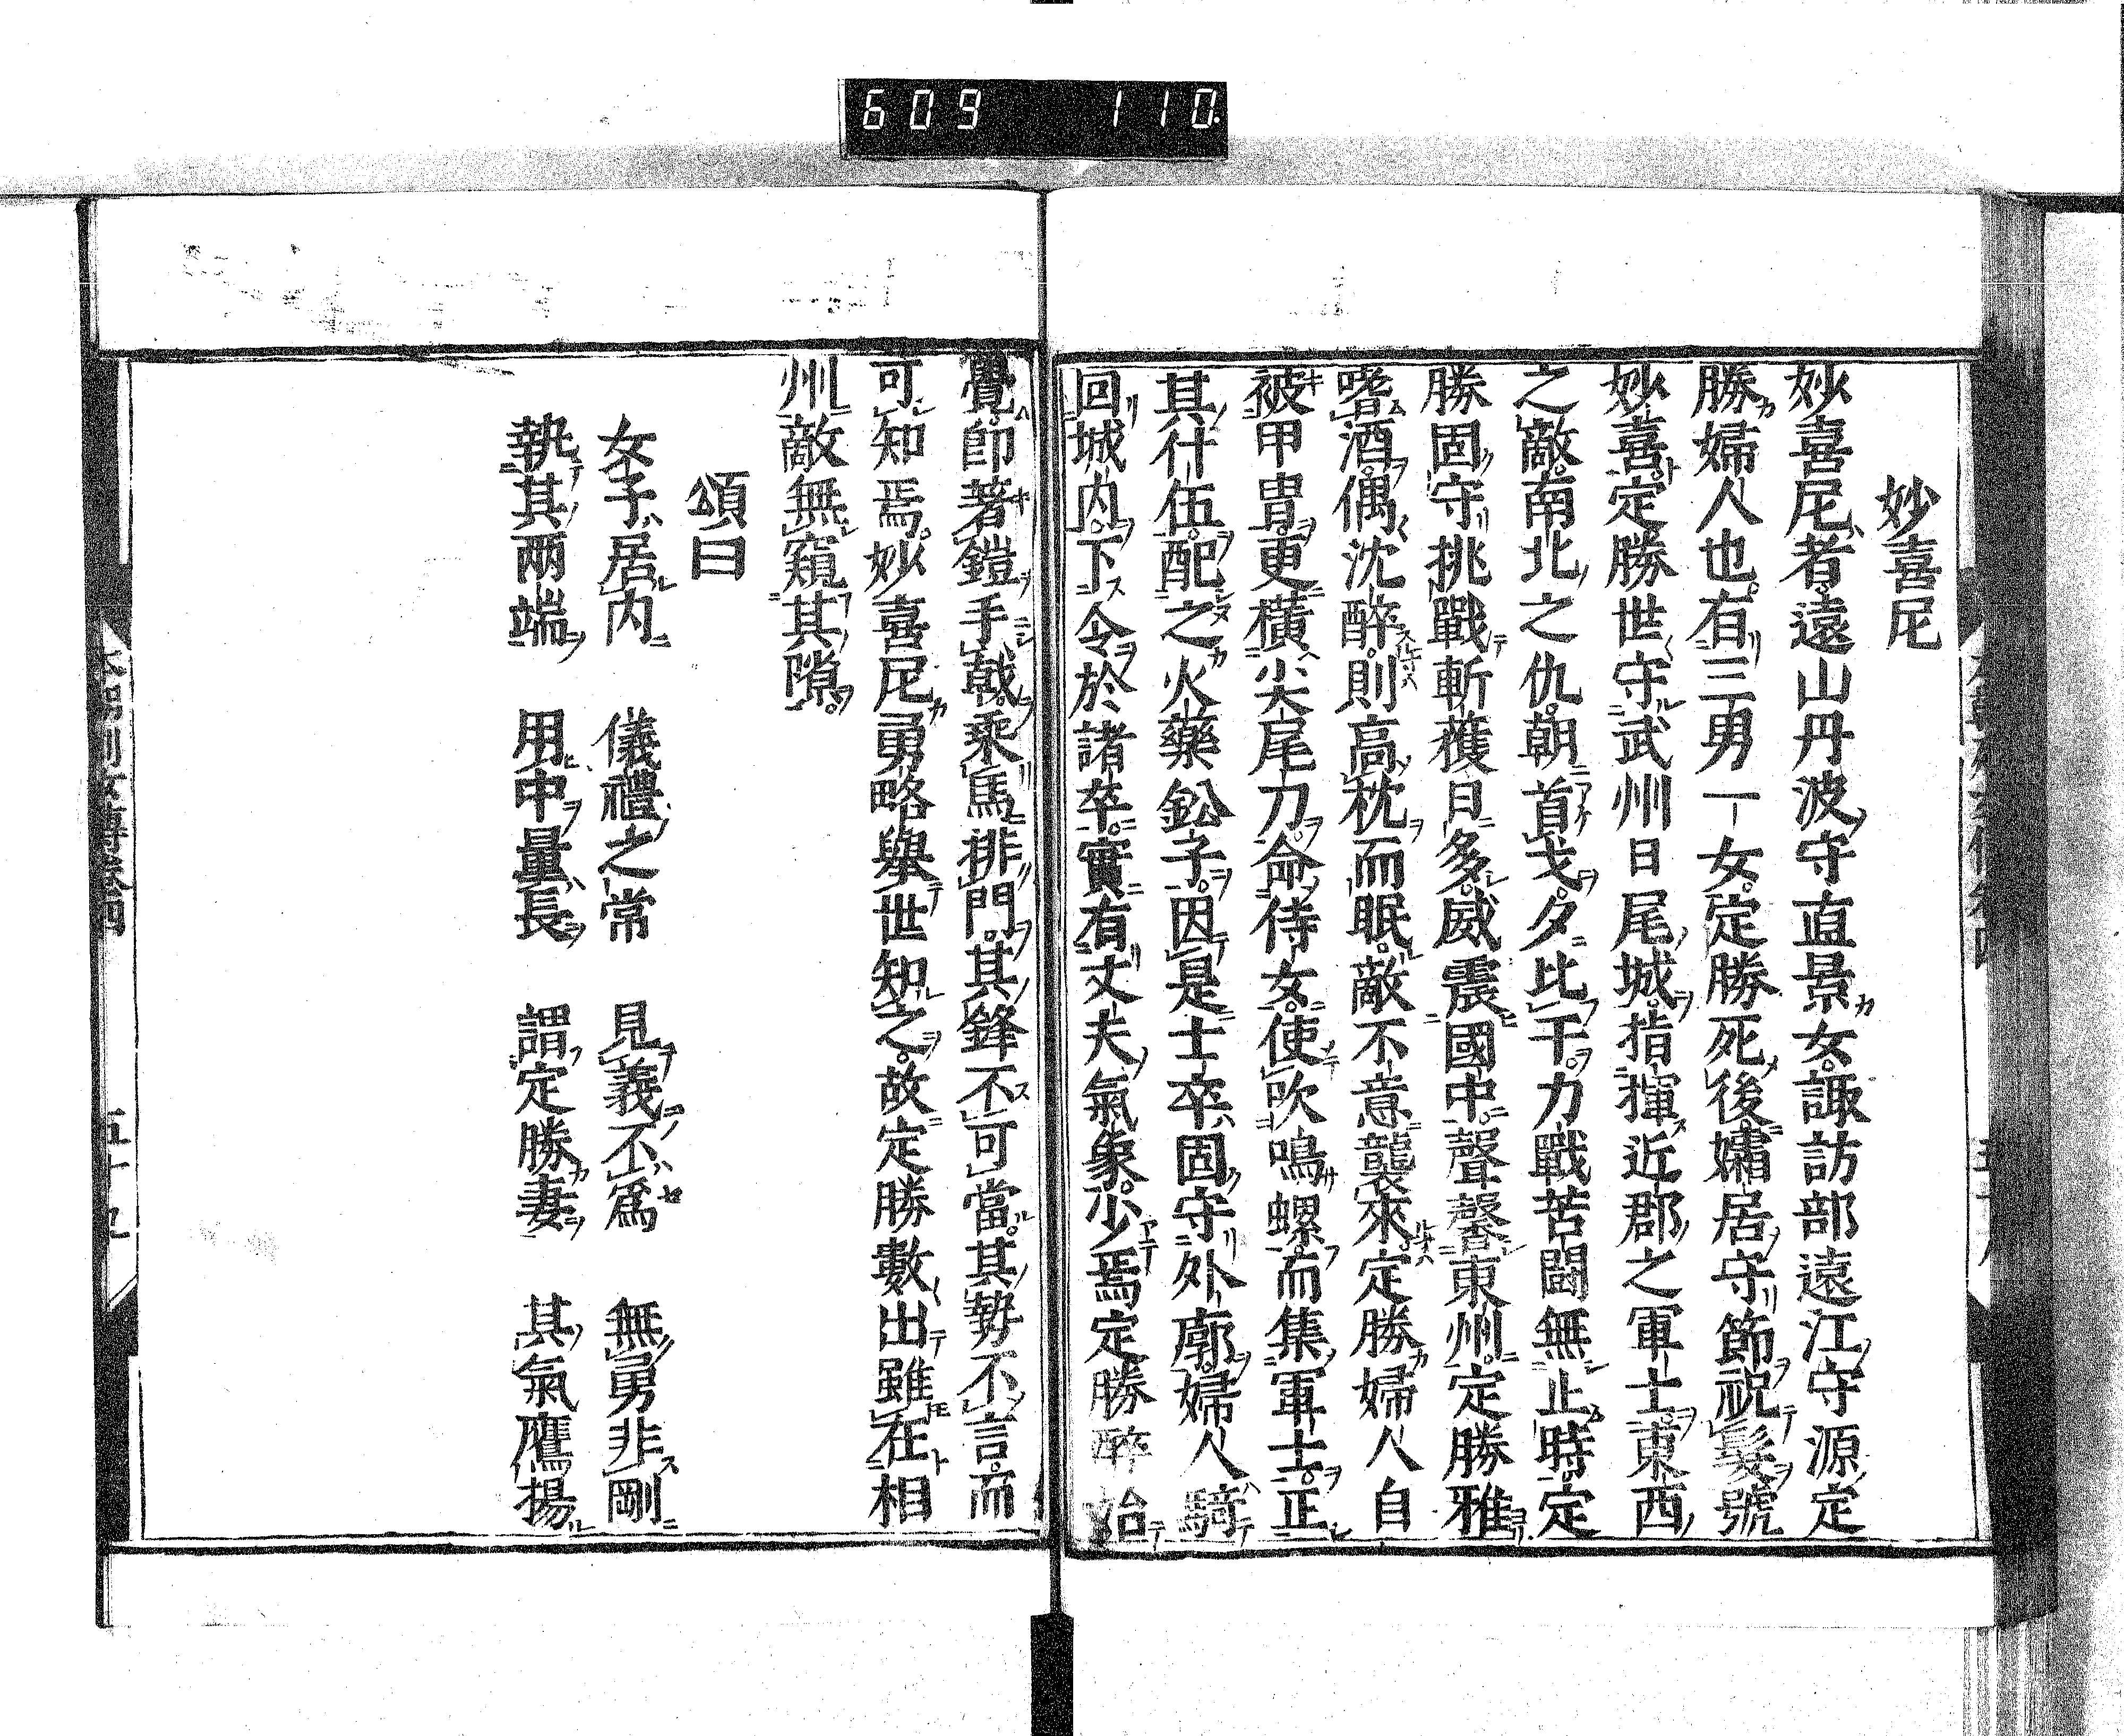 609 110.
妙喜尼
妙喜尼者遠山丹波守直景女諏訪部遠江守源定
勝婦人也有三男一女定勝死後孀居守節祝髮號
妙喜定勝世守武州日尾城指揮近郡之軍士東西
之敵南北之仇朝首戈夕比干力戰苦鬪無止時定
勝固守挑戰斬獲日多威震國中聲馨東州定勝雅
嗜酒偶沈醉則高枕而眠敵不意襲來定勝婦人自
被甲冑更橫尖尾刀命侍女使吹鳴螺而集軍士正
其什伍配之火藥鈆子因是士卒固守外廓婦人騎
回城内下令於諸卒實有丈夫氣象少焉定勝醉始
覺卽著鎧手戟乘馬排門其鋒不可當其勢不言而
可知焉妙喜尼勇略舉世知之故定勝數出雖在相
州敵無窺其隙
頌曰
女子居内 儀禮之常 見義不爲 無勇非剛
執其两端 用中量長 謂定勝妻 其氣鷹揚
本朝列女傳卷四 五十九